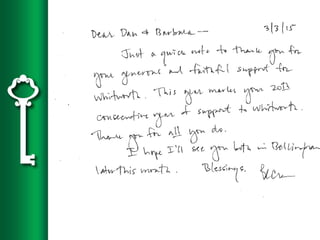 Dear Dan & Barbara — 3/3/15
Just a quick note to thank you for
your generous and faithful support for
Whitworth. This year marks your 20th
consecutive year of support to Whitworth.
Thank you for all you do.
I hope I'll see you both in Bellingham
later this month. Blessings.